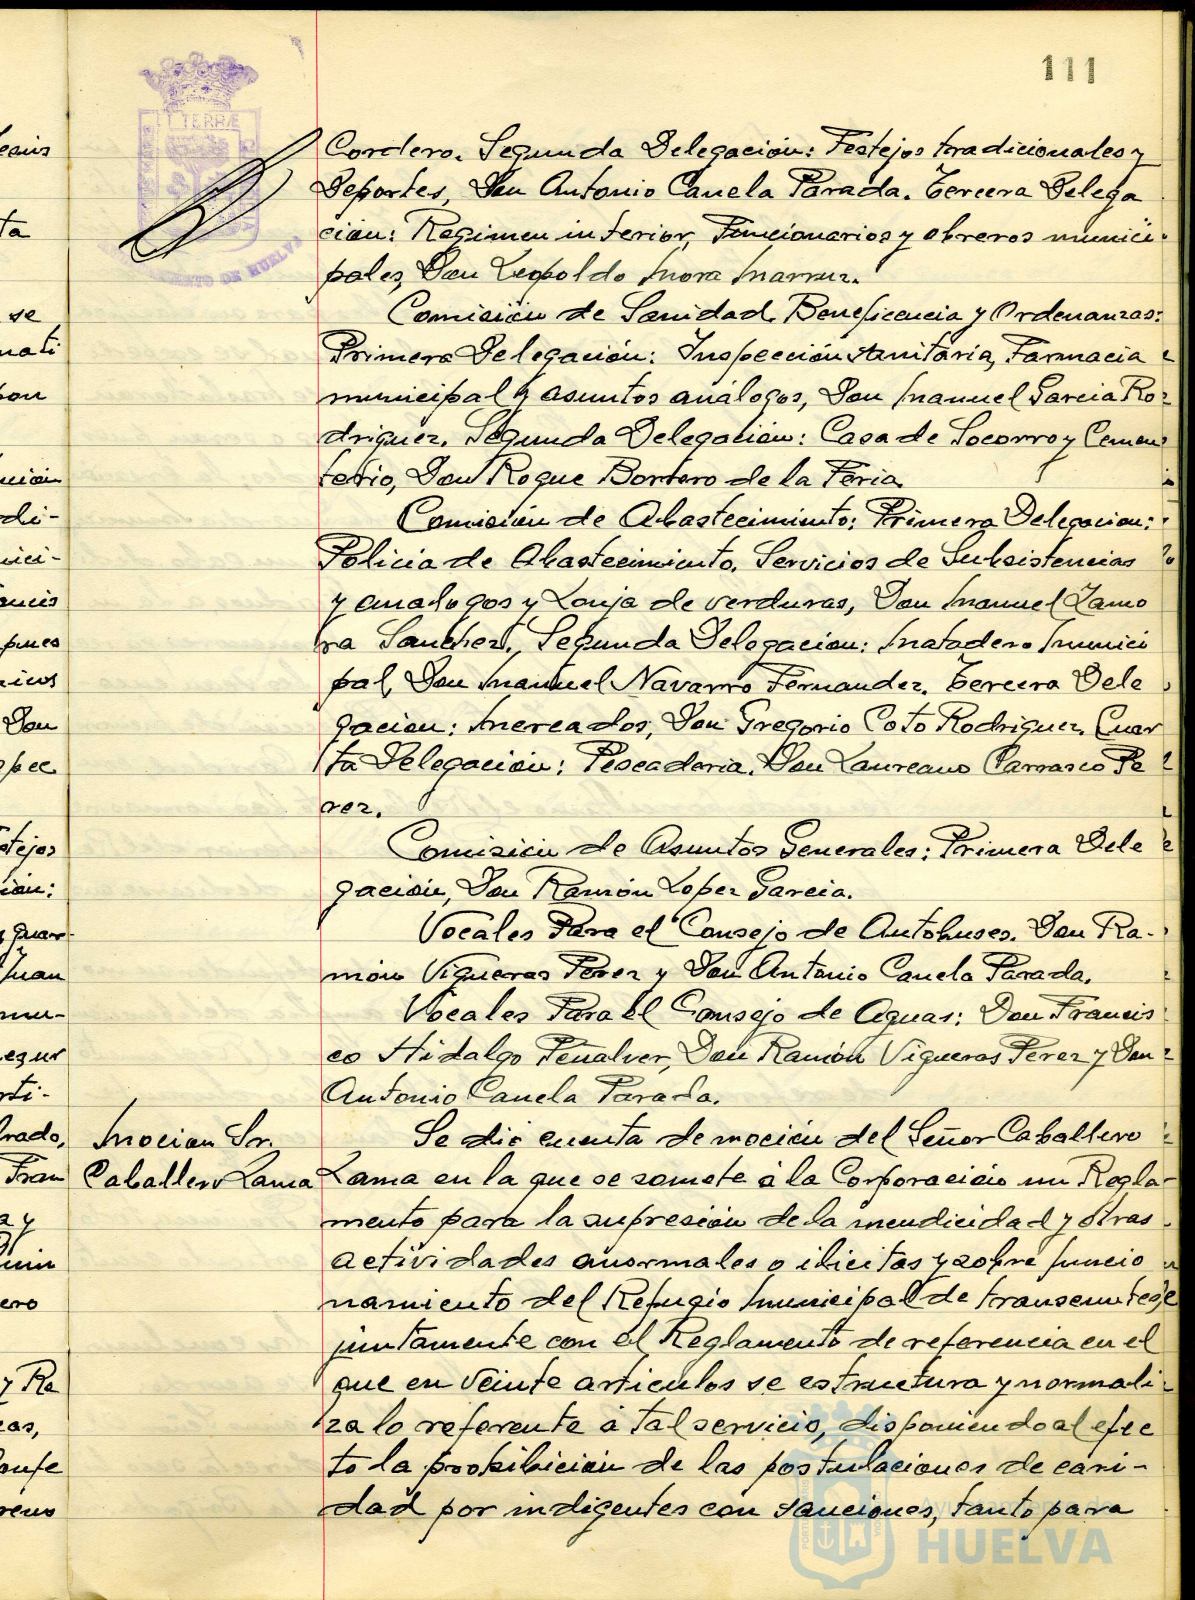 111
Cordero. Segunda Delegación: Festejos tradicionales y
Deportes, Don Antonio Canela Parada. Tercera Delega
ción: Regimen interior, Funcionarios y obreros munici-
pales, Don Leopoldo Mora
Comisión de Sanidad, Beneficencia y Ordenanzas:
Primera Delegación: Inspección sanitaria, Farmacia
municipal y asuntos análogos, Don Manuel Garcia Ro-
driguez. Segunda Delegación: Casa de Socorro y Cemen-
terio, Don Roque Bortero de la Feria
Comisión de Abastecimiento: Primera Delegacion:
Policia de Abastecimiento. Servicios de Subsistencias
y analogos y Lonja de verduras, Don Manuel Zamo
ra Sanchez., Segunda Delegacion: Matadero Munici
pal, Don Manuel Navarro Fernandez. Tercera Dele
gacion: Mercados, Don Gregorio Coto Rodriguez. Cuar
ta Delegación: Pescaderia. Don Laureano Carrasco Pe
rez.
Comisión de Asuntos Generales: Primera Dele
gación, Don Ramón Lopez Garcia.
Vocales Para el Consejo de Autobuses. Don Ra-
món Vigueras Perez y Don Antonio Canela Parada.
Vocales Para el Consejo de Aguas: Don Francis
co Hidalgo Peñalver, Don Ramón Vigueras Perez y Don
Antonio Canela Parada.
Mocion Sr.
Caballero Lama
Se dio cuenta de moción del Señor Caballero
Lama en la que se somete á la Corporación un Regla-
mento para la supresión de la mendicidad y otras
actividades anormales o ilicitas y sobre funcio
namiento del Refugio Municipal de transeuntes,
juntamente con el Reglamento de referencia en el
que en veinte articulos se estructura y normali-
za lo referente á tal servicio, disponiendo al efec
to la prohibición de las postulaciones de cari-
dad por indigentes con sanciones, tanto para
Ayuntamiento de
HUELVA